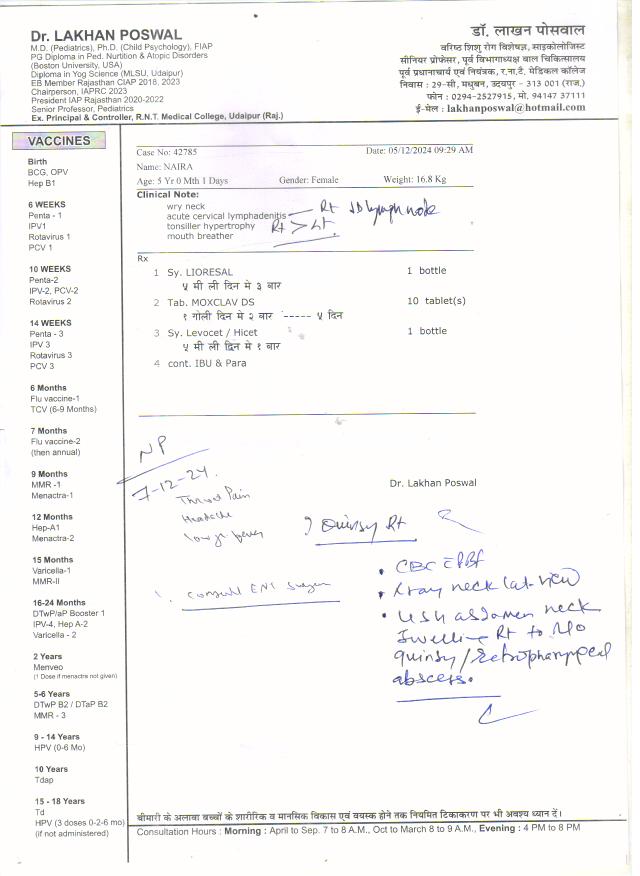 Dr. LAKHAN POSWAL
M.D. (Pediatrics), Ph.D. (Child Psychology), FIAP
PG Diploma in Ped. Nurtition & Atopic Disorders
(Boston University, USA)
Diploma in Yog Science (MLSU, Udaipur)
EB Member Rajasthan CIAP 2018, 2023
Chairperson, IAPRC 2023
President IAP Rajasthan 2020-2022
Senior Professor, Pediatrics
Ex. Principal & Controller, R.N.T. Medical College, Udaipur (Raj.)
डॉ. लाखन पोसवाल
वरिष्ठ शिशु रोग विशेषज्ञ, साइकोलोजिस्ट
सीनियर प्रोफेसर, पूर्व विभागाध्यक्ष बाल चिकित्सालय
पूर्व प्रधानाचार्य एवं नियंत्रक, र.ना.टै. मेडिकल कॉलेज
निवास : 29-सी, मधुबन, उदयपुर - 313 001 (राज.)
फोन : 0294-2527915, मो. 94147 37111
ई-मेल : lakhanposwal@hotmail.com
VACCINES
Birth
BCG, OPV
Hep B1
6 WEEKS
Penta - 1
IPV1
Rotavirus 1
PCV 1
10 WEEKS
Penta-2
IPV-2, PCV-2
Rotavirus 2
14 WEEKS
Penta - 3
IPV 3
Rotavirus 3
PCV 3
6 Months
Flu vaccine-1
TCV (6-9 Months)
7 Months
Flu vaccine-2
(then annual)
9 Months
MMR -1
Menactra-1
12 Months
Hep-A1
Menactra-2
15 Months
Varicella-1
MMR-II
16-24 Months
DTwP/aP Booster 1
IPV-4, Hep A-2
Varicella - 2
2 Years
Menveo
(1 Dose if menactra not given)
5-6 Years
DTwP B2 / DTaP B2
MMR - 3
9 - 14 Years
HPV (0-6 Mo)
10 Years
Tdap
15 - 18 Years
Td
HPV (3 doses 0-2-6 mo)
(if not administered)
Case No: 42785 Date: 05/12/2024 09:29 AM
Name: NAIRA
Age: 5 Yr 0 Mth 1 Days Gender: Female Weight: 16.8 Kg
Clinical Note:
wry neck
acute cervical lymphadenitis Rt JD lymph node
tonsiller hypertrophy Rt > Lt
mouth breather
Rx
1 Sy. LIORESAL 1 bottle
५ मी ली दिन मे ३ बार
2 Tab. MOXCLAV DS 10 tablet(s)
१ गोली दिन मे २ बार ----- ५ दिन
3 Sy. Levocet / Hicet 1 bottle
५ मी ली दिन मे १ बार
4 cont. IBU & Para
Dr. Lakhan Poswal
NP
7-12-24.
Throat Pain
Headache
low gr fever
? Quinsy Rt
1. Consult ENT surgeon
• CBC c̄ PBF
• Xray neck lat-view
• USH abdomen neck
Swelling Rt to R/o
quinsy/Retropharyngeal
abscess.
बीमारी के अलावा बच्चों के शारीरिक व मानसिक विकास एवं वयस्क होने तक नियमित टिकाकरण पर भी अवश्य ध्यान दें।
Consultation Hours : Morning : April to Sep. 7 to 8 A.M., Oct to March 8 to 9 A.M., Evening : 4 PM to 8 PM